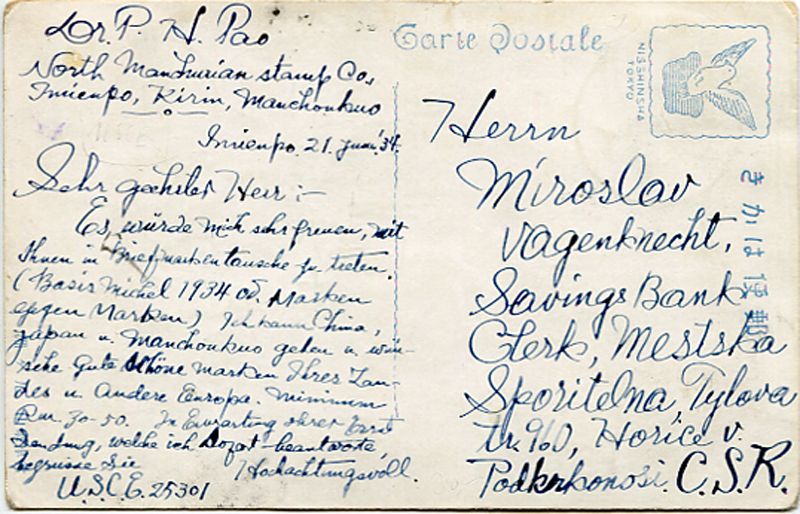 Dr. P. H. Pao
North Manchurian stamp Co,
Imienpo, Kirin, Manchoukuo
Imienpo. 21. Juni '34.
Sehr geehrter Herr :-
Es würde mich sehr freuen, mit
Ihnen in Briefmarkentausche zu treten.
(Basis Michel 1934 od. Marken
gegen Marken) Ich kann China,
Japan u. Manchoukuo geben u. wün-
sche gute schöne Marken Ihres Lan-
des u. andere Europa. Minimum
Rm. 30-50. In Erwartung Ihrer Erst
Sendung, welche ich sofort beantworte,
begrüsse Sie
Hochachtungsvoll.
U.S.C.E. 25301
Carte Postale
NISSHINSHA
TOKYO
きかは便郵
Herrn
Miroslav
Vagenknecht,
Savings Bank
Clerk, Mestska
Sporitelna, Tylova
tr. 960, Horice v.
Podkrkonosi. C.S.R.